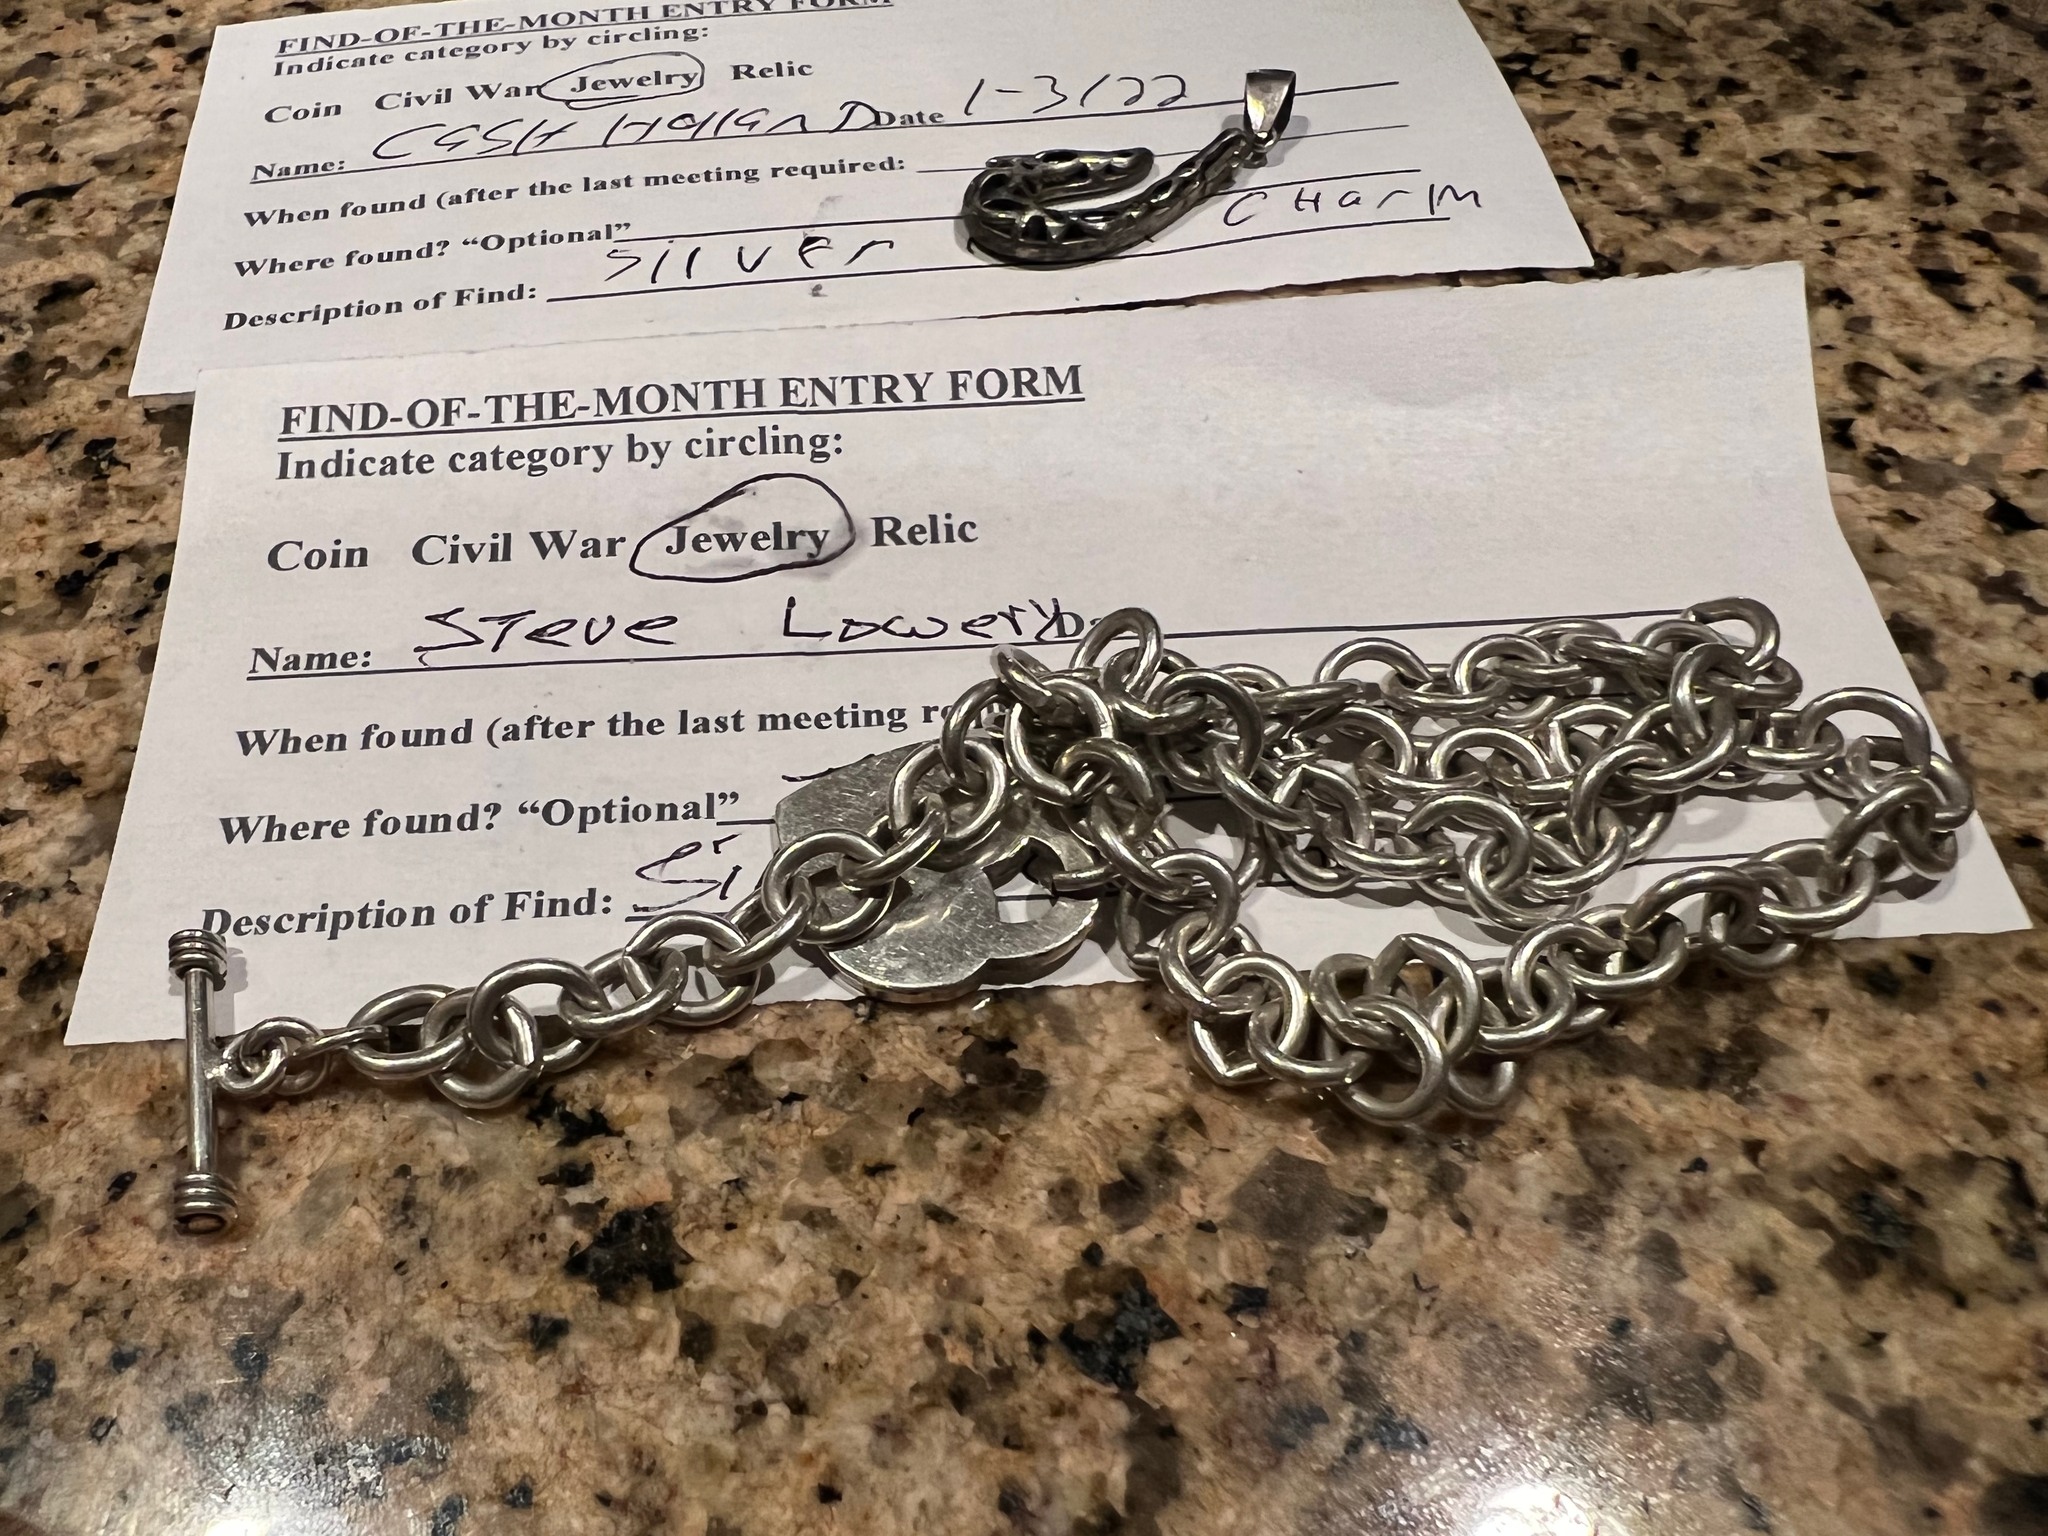 FIND-OF-THE-MONTH ENTRY FORM
Indicate category by circling:
Coin Civil War Jewelry Relic
Name: CASH HOllAnD Date 1-3/22
When found (after the last meeting required:
Where found? “Optional”
Description of Find: Silver CHarM
FIND-OF-THE-MONTH ENTRY FORM
Indicate category by circling:
Coin Civil War Jewelry Relic
Name: STeve Lowery
When found (after the last meeting
Where found? “Optional”
Description of Find: Si